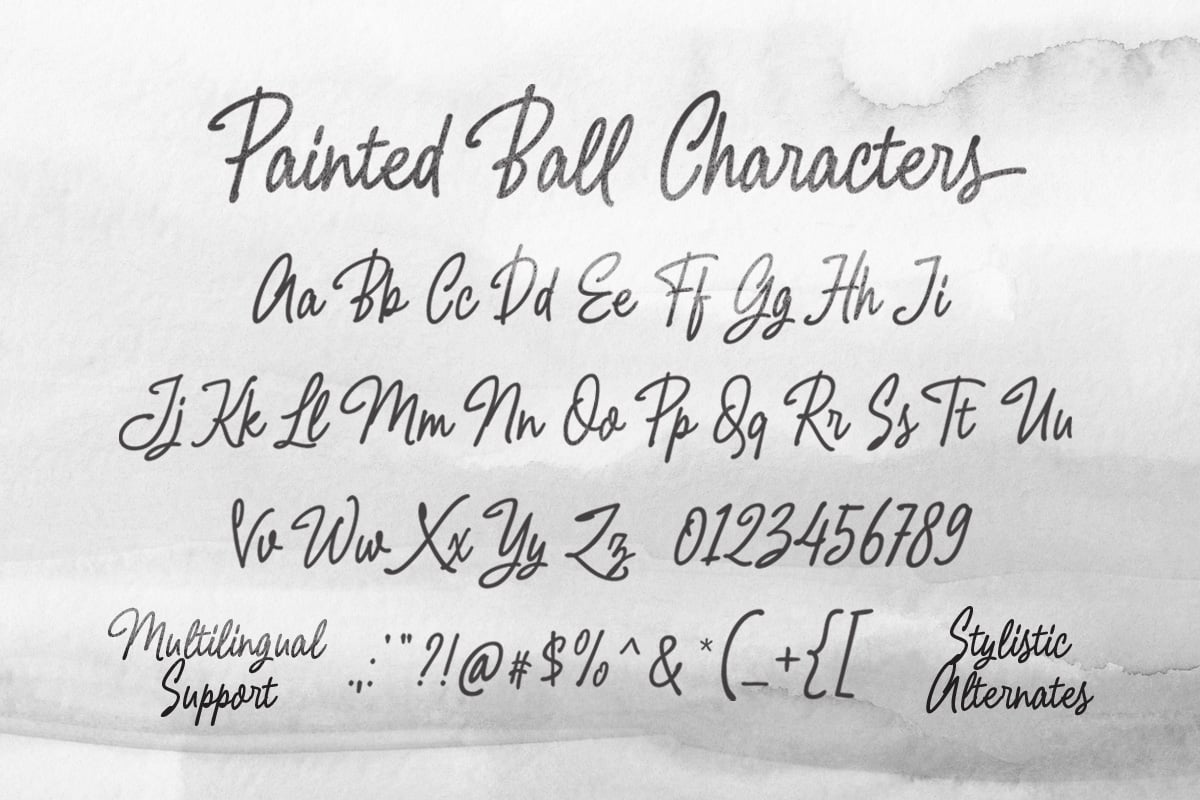 Painted Ball Characters
Aa Bb Cc Dd Ee Ff Gg Hh Ii
Jj Kk Ll Mm Nn Oo Pp Qq Rr Ss Tt Uu
Vv Ww Xx Yy Zz 0123456789
Multilingual
Support
.,:; ' " ?!@#$%^&*(_+{[
Stylistic
Alternates